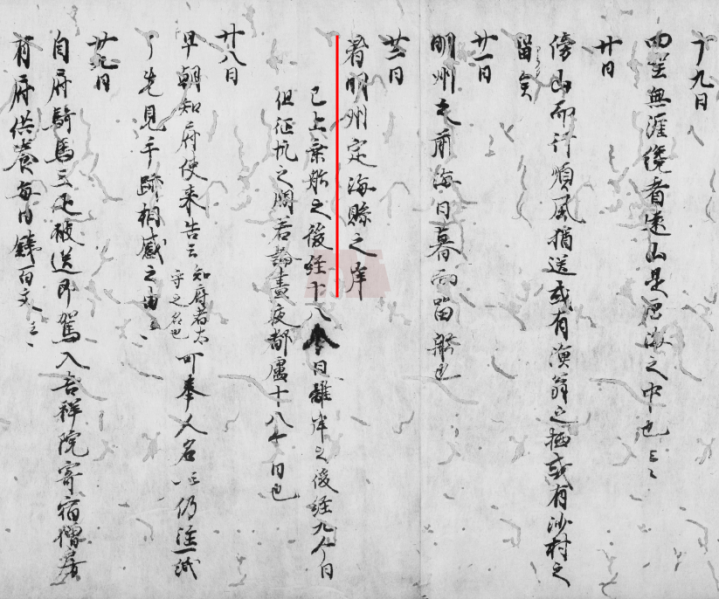 十九日
四望無涯纔看遠山是渤海之中也云々
廿日
傍山而行順風猶送或有漁翁之栖或有沙村之
留矣
廿一日
明州之前海日暮而留船也
廿二日
着明州定海縣之岸
已上乗船之後経十八个日離岸之後経九个日
但征帆之間若論晝夜都盧十八个日也
廿八日
早朝知府使来告云知府者太守之名也可奉人名云々仍注一紙
了先見手跡相感之由云々
廿九日
自府騎馬三疋被送即駕入吉祥院寄宿僧房
有府供養毎日銭百文云々